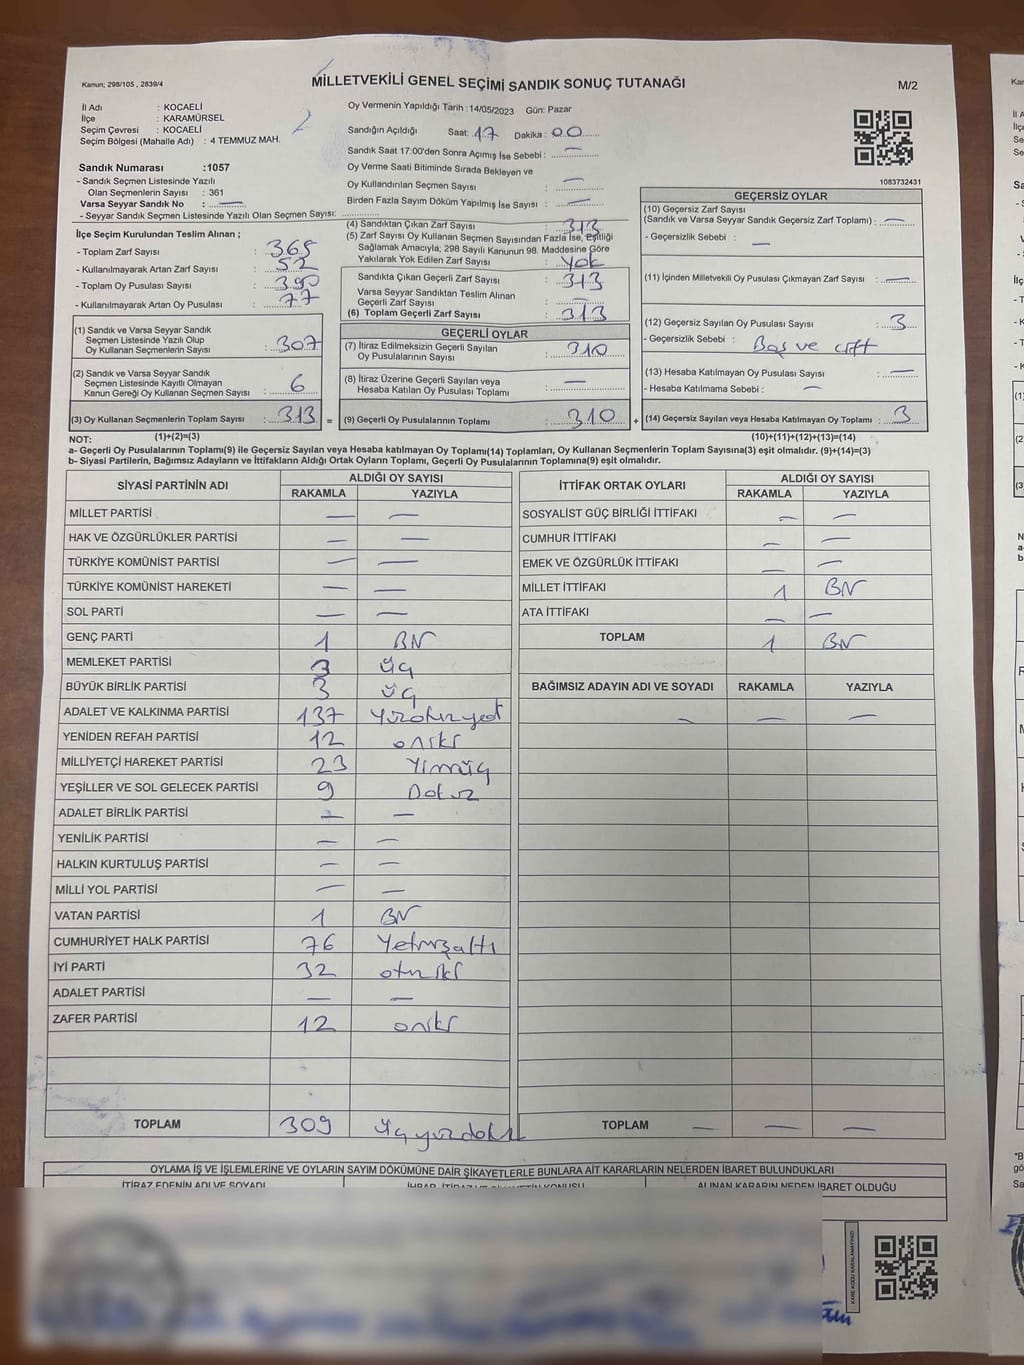 Kanun: 298/105 , 2839/4
MİLLETVEKİLİ GENEL SEÇİMİ SANDIK SONUÇ TUTANAĞI
M/2
İl Adı : KOCAELİ
İlçe : KARAMÜRSEL
Seçim Çevresi : KOCAELİ
Seçim Bölgesi (Mahalle Adı) : 4 TEMMUZ MAH.
Sandık Numarası :1057
- Sandık Seçmen Listesinde Yazılı
Olan Seçmenlerin Sayısı : 361
Varsa Seyyar Sandık No : —
- Seyyar Sandık Seçmen Listesinde Yazılı Olan Seçmen Sayısı:
Oy Vermenin Yapıldığı Tarih :14/05/2023 Gün: Pazar
Sandığın Açıldığı Saat: 17 Dakika : 00
Sandık Saat 17:00'den Sonra Açımış İse Sebebi : —
Oy Verme Saati Bitiminde Sırada Bekleyen ve
Oy Kullandırılan Seçmen Sayısı : —
Birden Fazla Sayım Döküm Yapılmış İse Sayısı : —
1083732431
İlçe Seçim Kurulundan Teslim Alınan ;
- Toplam Zarf Sayısı : 365
- Kullanılmayarak Artan Zarf Sayısı : 52
- Toplam Oy Pusulası Sayısı : 390
- Kullanılmayarak Artan Oy Pusulası : 77
(1) Sandık ve Varsa Seyyar Sandık
Seçmen Listesinde Yazılı Olup
Oy Kullanan Seçmenlerin Sayısı : 307
(2) Sandık ve Varsa Seyyar Sandık
Seçmen Listesinde Kayıtlı Olmayan
Kanun Gereği Oy Kullanan Seçmen Sayısı : 6
(3) Oy Kullanan Seçmenlerin Toplam Sayısı : 313 =
(4) Sandıktan Çıkan Zarf Sayısı : 313
(5) Zarf Sayısı Oy Kullanan Seçmen Sayısından Fazla İse, Eşitliği
Sağlamak Amacıyla; 298 Sayılı Kanunun 98. Maddesine Göre
Yakılarak Yok Edilen Zarf Sayısı : Yok
Sandıkta Çıkan Geçerli Zarf Sayısı : 313
Varsa Seyyar Sandıktan Teslim Alınan
Geçerli Zarf Sayısı : —
(6) Toplam Geçerli Zarf Sayısı : 313
GEÇERLİ OYLAR
(7) İtiraz Edilmeksizin Geçerli Sayılan
Oy Pusulalarının Sayısı : 310
(8) İtiraz Üzerine Geçerli Sayılan veya
Hesaba Katılan Oy Pusulası Toplamı : —
(9) Geçerli Oy Pusulalarının Toplamı : 310 +
GEÇERSİZ OYLAR
(10) Geçersiz Zarf Sayısı
(Sandık ve Varsa Seyyar Sandık Geçersiz Zarf Toplamı) : —
- Geçersizlik Sebebi : —
(11) İçinden Milletvekili Oy Pusulası Çıkmayan Zarf Sayısı : —
(12) Geçersiz Sayılan Oy Pusulası Sayısı : 3
- Geçersizlik Sebebi : Boş ve çift
(13) Hesaba Katılmayan Oy Pusulası Sayısı : —
- Hesaba Katılmama Sebebi : —
(14) Geçersiz Sayılan veya Hesaba Katılmayan Oy Toplamı : 3
NOT: (1)+(2)=(3) (10)+(11)+(12)+(13)=(14)
a- Geçerli Oy Pusulalarının Toplamı(9) ile Geçersiz Sayılan veya Hesaba katılmayan Oy Toplamı(14) Toplamları, Oy Kullanan Seçmenlerin Toplam Sayısına(3) eşit olmalıdır. (9)+(14)=(3)
b- Siyasi Partilerin, Bağımsız Adayların ve İttifakların Aldığı Ortak Oyların Toplamı, Geçerli Oy Pusulalarının Toplamına(9) eşit olmalıdır.
SİYASİ PARTİNİN ADI ALDIĞI OY SAYISI
RAKAMLA YAZIYLA
MİLLET PARTİSİ — —
HAK VE ÖZGÜRLÜKLER PARTİSİ — —
TÜRKİYE KOMÜNİST PARTİSİ — —
TÜRKİYE KOMÜNİST HAREKETİ — —
SOL PARTİ — —
GENÇ PARTİ 1 BİR
MEMLEKET PARTİSİ 3 üç
BÜYÜK BİRLİK PARTİSİ 3 üç
ADALET VE KALKINMA PARTİSİ 137 Yüzotuzyedi
YENİDEN REFAH PARTİSİ 12 oniki
MİLLİYETÇİ HAREKET PARTİSİ 23 Yirmiüç
YEŞİLLER VE SOL GELECEK PARTİSİ 9 Dokuz
ADALET BİRLİK PARTİSİ — —
YENİLİK PARTİSİ — —
HALKIN KURTULUŞ PARTİSİ — —
MİLLİ YOL PARTİSİ — —
VATAN PARTİSİ 1 BİR
CUMHURİYET HALK PARTİSİ 76 Yetmişaltı
İYİ PARTİ 32 otuziki
ADALET PARTİSİ — —
ZAFER PARTİSİ 12 oniki
TOPLAM 309 üçyüzdokuz
İTTİFAK ORTAK OYLARI ALDIĞI OY SAYISI
RAKAMLA YAZIYLA
SOSYALİST GÜÇ BİRLİĞİ İTTİFAKI — —
CUMHUR İTTİFAKI — —
EMEK VE ÖZGÜRLÜK İTTİFAKI — —
MİLLET İTTİFAKI 1 BİR
ATA İTTİFAKI — —
TOPLAM 1 BİR
BAĞIMSIZ ADAYIN ADI VE SOYADI RAKAMLA YAZIYLA
— — —
TOPLAM — — —
OYLAMA İŞ VE İŞLEMLERİNE VE OYLARIN SAYIM DÖKÜMÜNE DAİR ŞİKAYETLERLE BUNLARA AİT KARARLARIN NELERDEN İBARET BULUNDUKLARI
İTİRAZ EDENİN ADI VE SOYADI
ALINAN KARARIN NEDEN İBARET OLDUĞU
KARE KODU KARALAMAYINIZ!